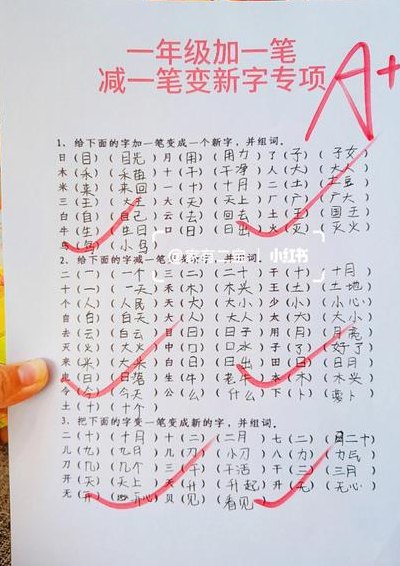 一年级加一笔
减一笔变新字专项
A+
1、给下面的字加一笔变成一个新字,并组词。
日(目)(目光)月(用)(用力)了(子)(子女)
木(禾)(禾苗)十(干)(干净)人(大)(大人)
米(来)(来回)一(十)(十月)二(土)(土豆)
三(王)(大王)大(天)(天上)广(广大)
白(自)(自己)云(去)(回去)土(王)(国王)
牛(生)(生日)口(日)(日出)火(灭)(灭火)
鸟(小鸟)
小红书
2、给下面的字减一笔变成新字,并组词。
二(一)(一个)三(二)(二十)干(十)(十月)
十(一)(一天)禾(木)(木头)王(土)(土地)
个(人)(人民)天(大)(大小)少(小)(小心)
自(白)(白天)大(人)(人大)太(大)(大小)
去(云)(白云)目(日)(日子)用(月)(月亮)
灭(火)(大火)中(口)(口水)子(了)(好了)
来(米)(大米)白(日)(日出)田(日)(日月)
(日)(日落)生(牛)(老牛)本(木)(木头)
令(今)(今天)公(么)(什么)下(卜)(萝卜)
土(十)(十个)
3、把下面的字变一笔变成新的字,并组词。
二(十)(十月)十(二)(二月)七(二)(二十)
儿(九)(九日)几(刀)(小刀)八(力)
刀(几)(几个)三(干)(干活)干(三)(三月)
开(天)(天上)天(升)(升起)升(无)(无心)
无(开)(开心)贝(见)(看见)